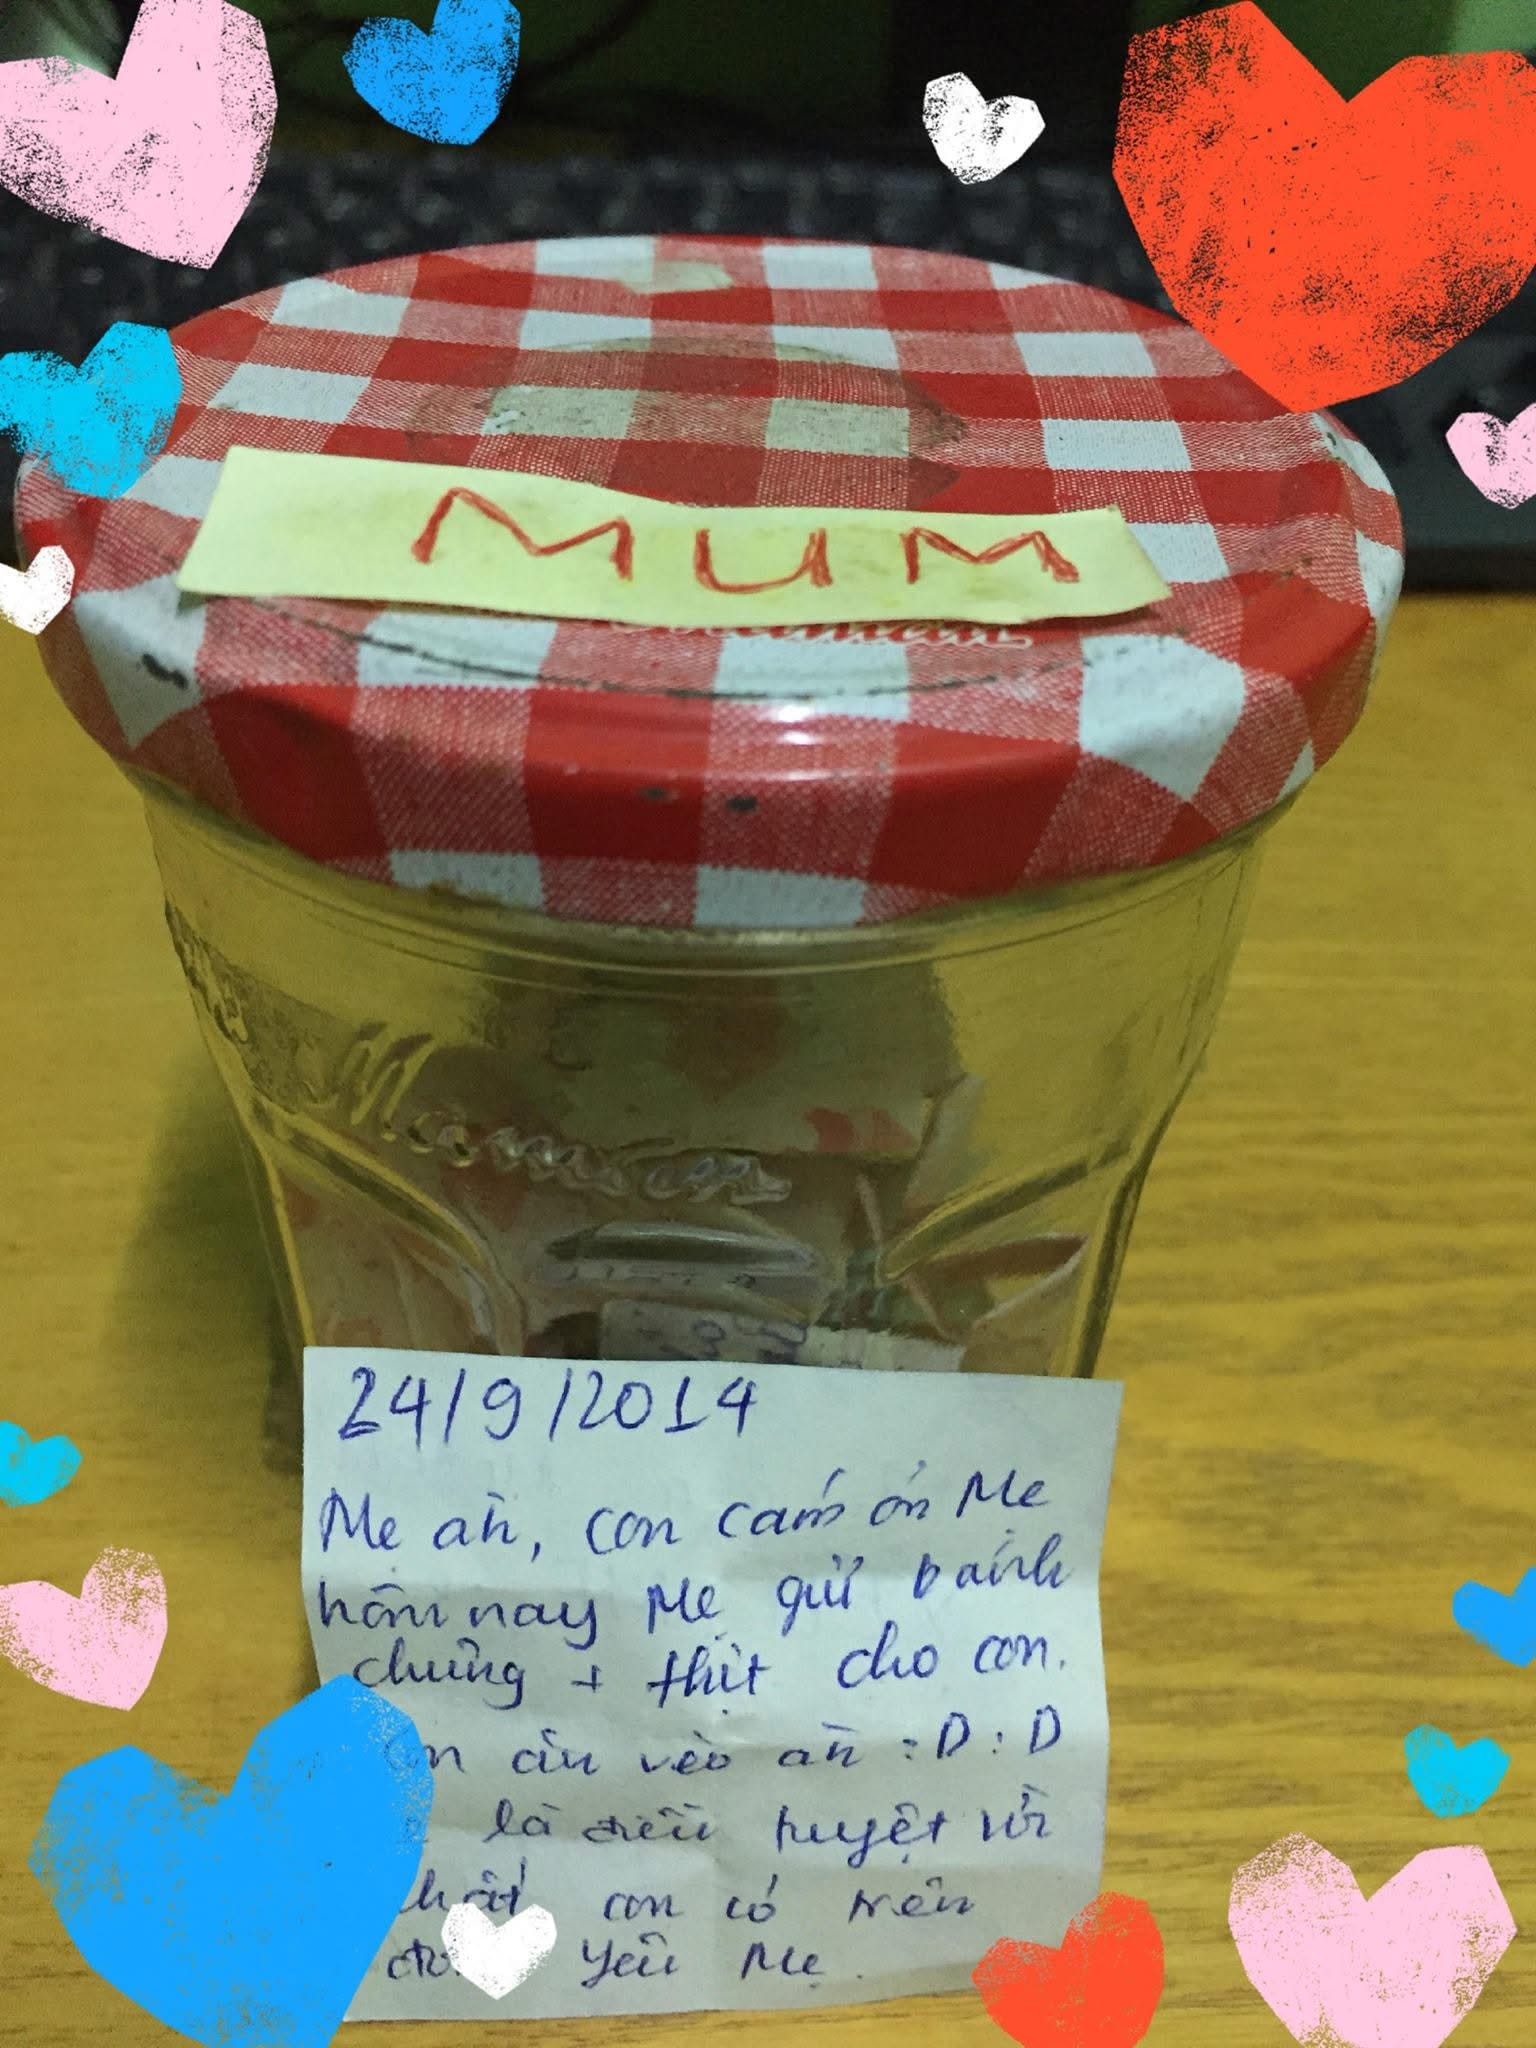 MUM
Maman
24/9/2014
Mẹ ăn, con cám ơn Mẹ
hôm nay Mẹ gửi bánh
chưng + thịt cho con.
vèo :D :D
là điều tuyệt vời
nhất con có trên
Yêu Mẹ.